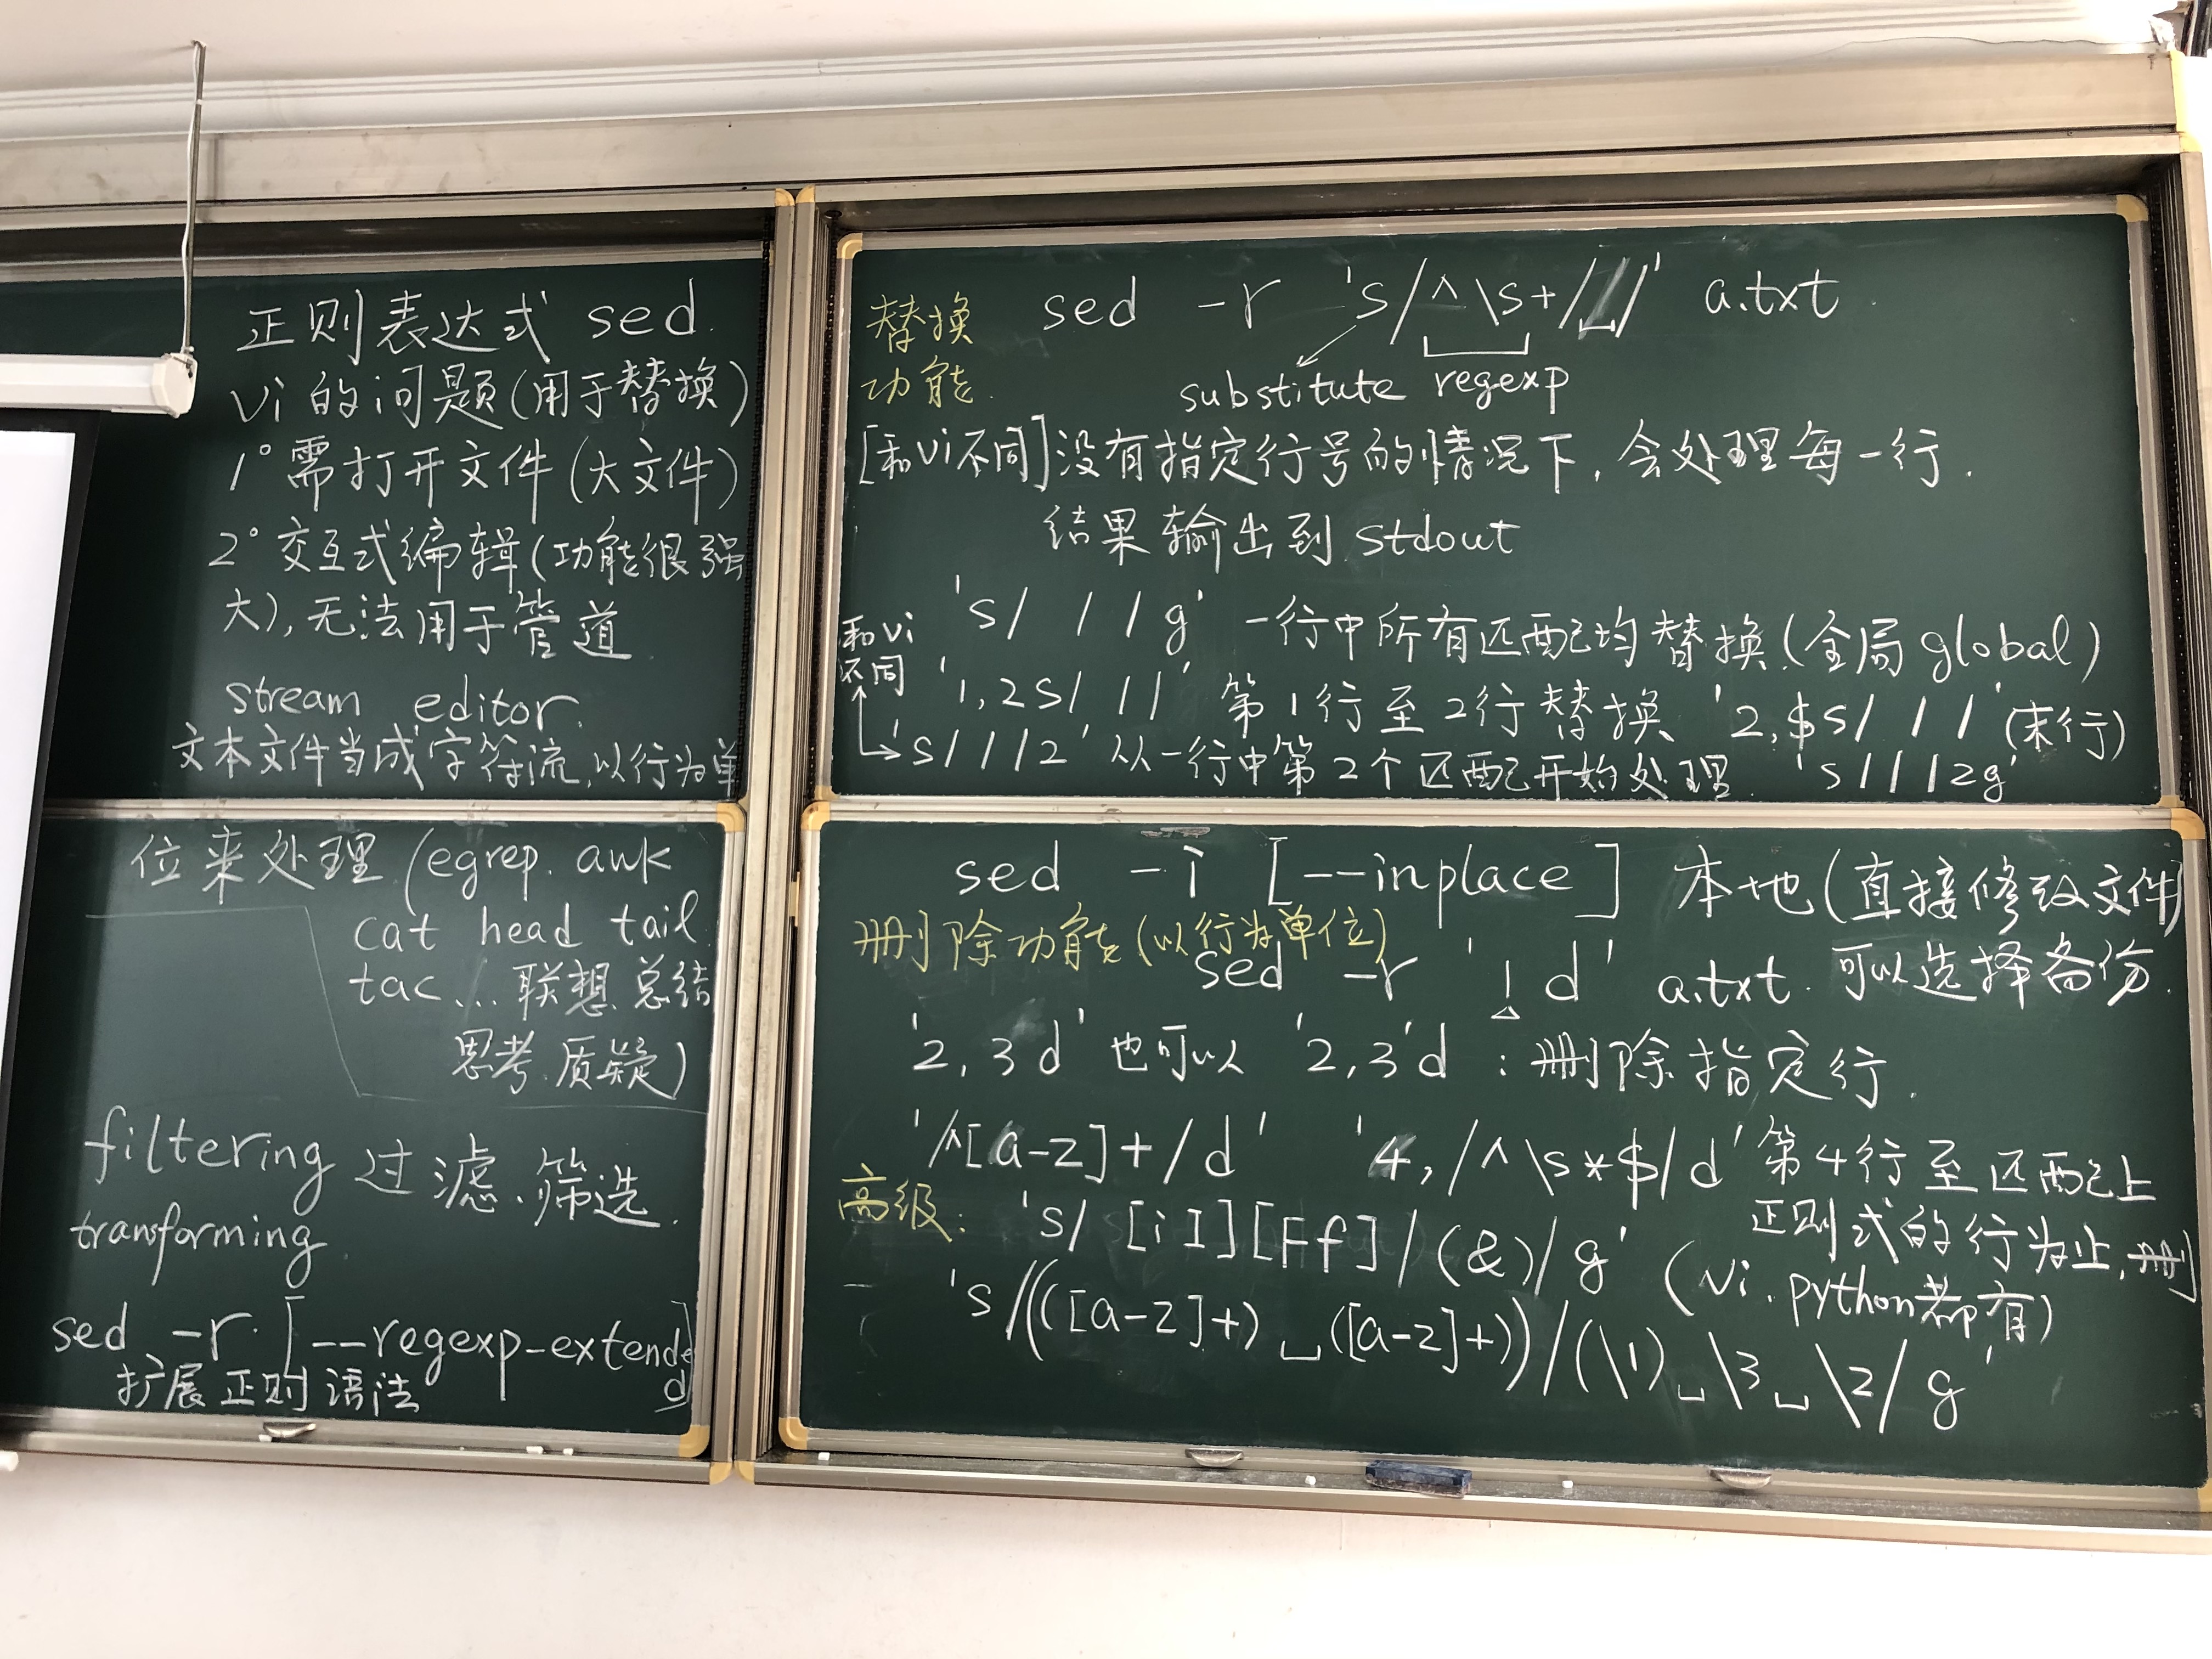 正则表达式 sed.
vi的问题(用于替换)
1°需打开文件(大文件)
2°交互式编辑(功能很强
大),无法用于管道
stream editor.
文本文件当成字符流,以行为单
位来处理(egrep. awk
cat head tail
tac...联想.总结
思考.质疑)
filtering 过滤.筛选.
transforming.
sed -r. [--regexp-extended]
扩展正则语法
替换
功能.
sed -r 's/^\s+/␣/' a.txt.
substitute regexp
[和vi不同]没有指定行号的情况下,会处理每一行.
结果输出到 stdout
's/ / /g' 一行中所有匹配均替换.(全局global)
和vi
不同
'1,2s/ / /' 第1行至2行替换 '2,$s/ / /' (末行)
's/ / /2' 从一行中第2个匹配开始处理. 's/ / /2g'
sed -i [--inplace] 本地(直接修改文件)
删除功能(以行为单位)
sed -r '1d' a.txt. 可以选择备份.
'2,3d' 也可以 '2,3'd : 删除指定行.
'/^[a-z]+/d' '4,/^\s*$/d' 第4行至匹配上
正则式的行为止,删
高级: 's/[iI][Ff]/(&)/g' (vi.python都有)
's/(([a-z]+)␣([a-z]+))/(\1)␣\3␣\2/g'